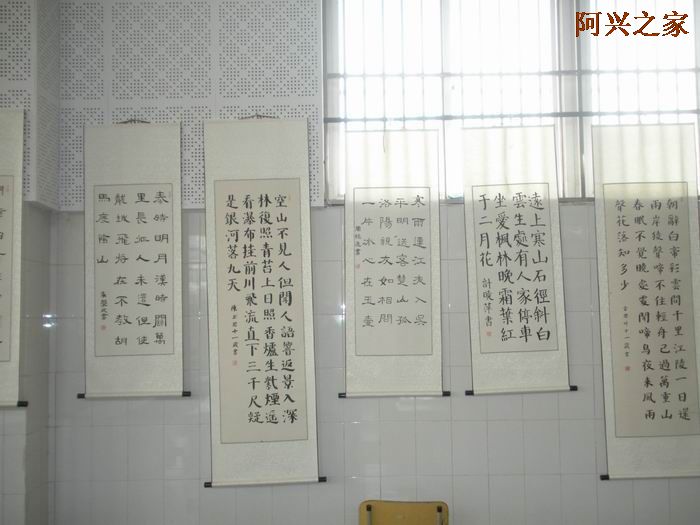 阿兴之家
朝辭白帝彩雲間千里江陵一日還
兩岸猿聲啼不住輕舟已過萬重山
春眠不覺曉處處聞啼鳥夜來風雨
聲花落知多少
十一歲書
遠上寒山石徑斜白
雲生處有人家停車
坐愛楓林晚霜葉紅
于二月花
書
寒雨連江夜入吳
平明送客楚山孤
洛陽親友如相問
一片冰心在玉壺
書
空山不見人但聞人語響返景入深
林復照青苔上日照香爐生紫煙遙
看瀑布挂前川飛流直下三千尺疑
是銀河落九天
十一歲書
秦時明月漢時關萬
里長征人未還但使
龍城飛將在不教胡
馬度陰山